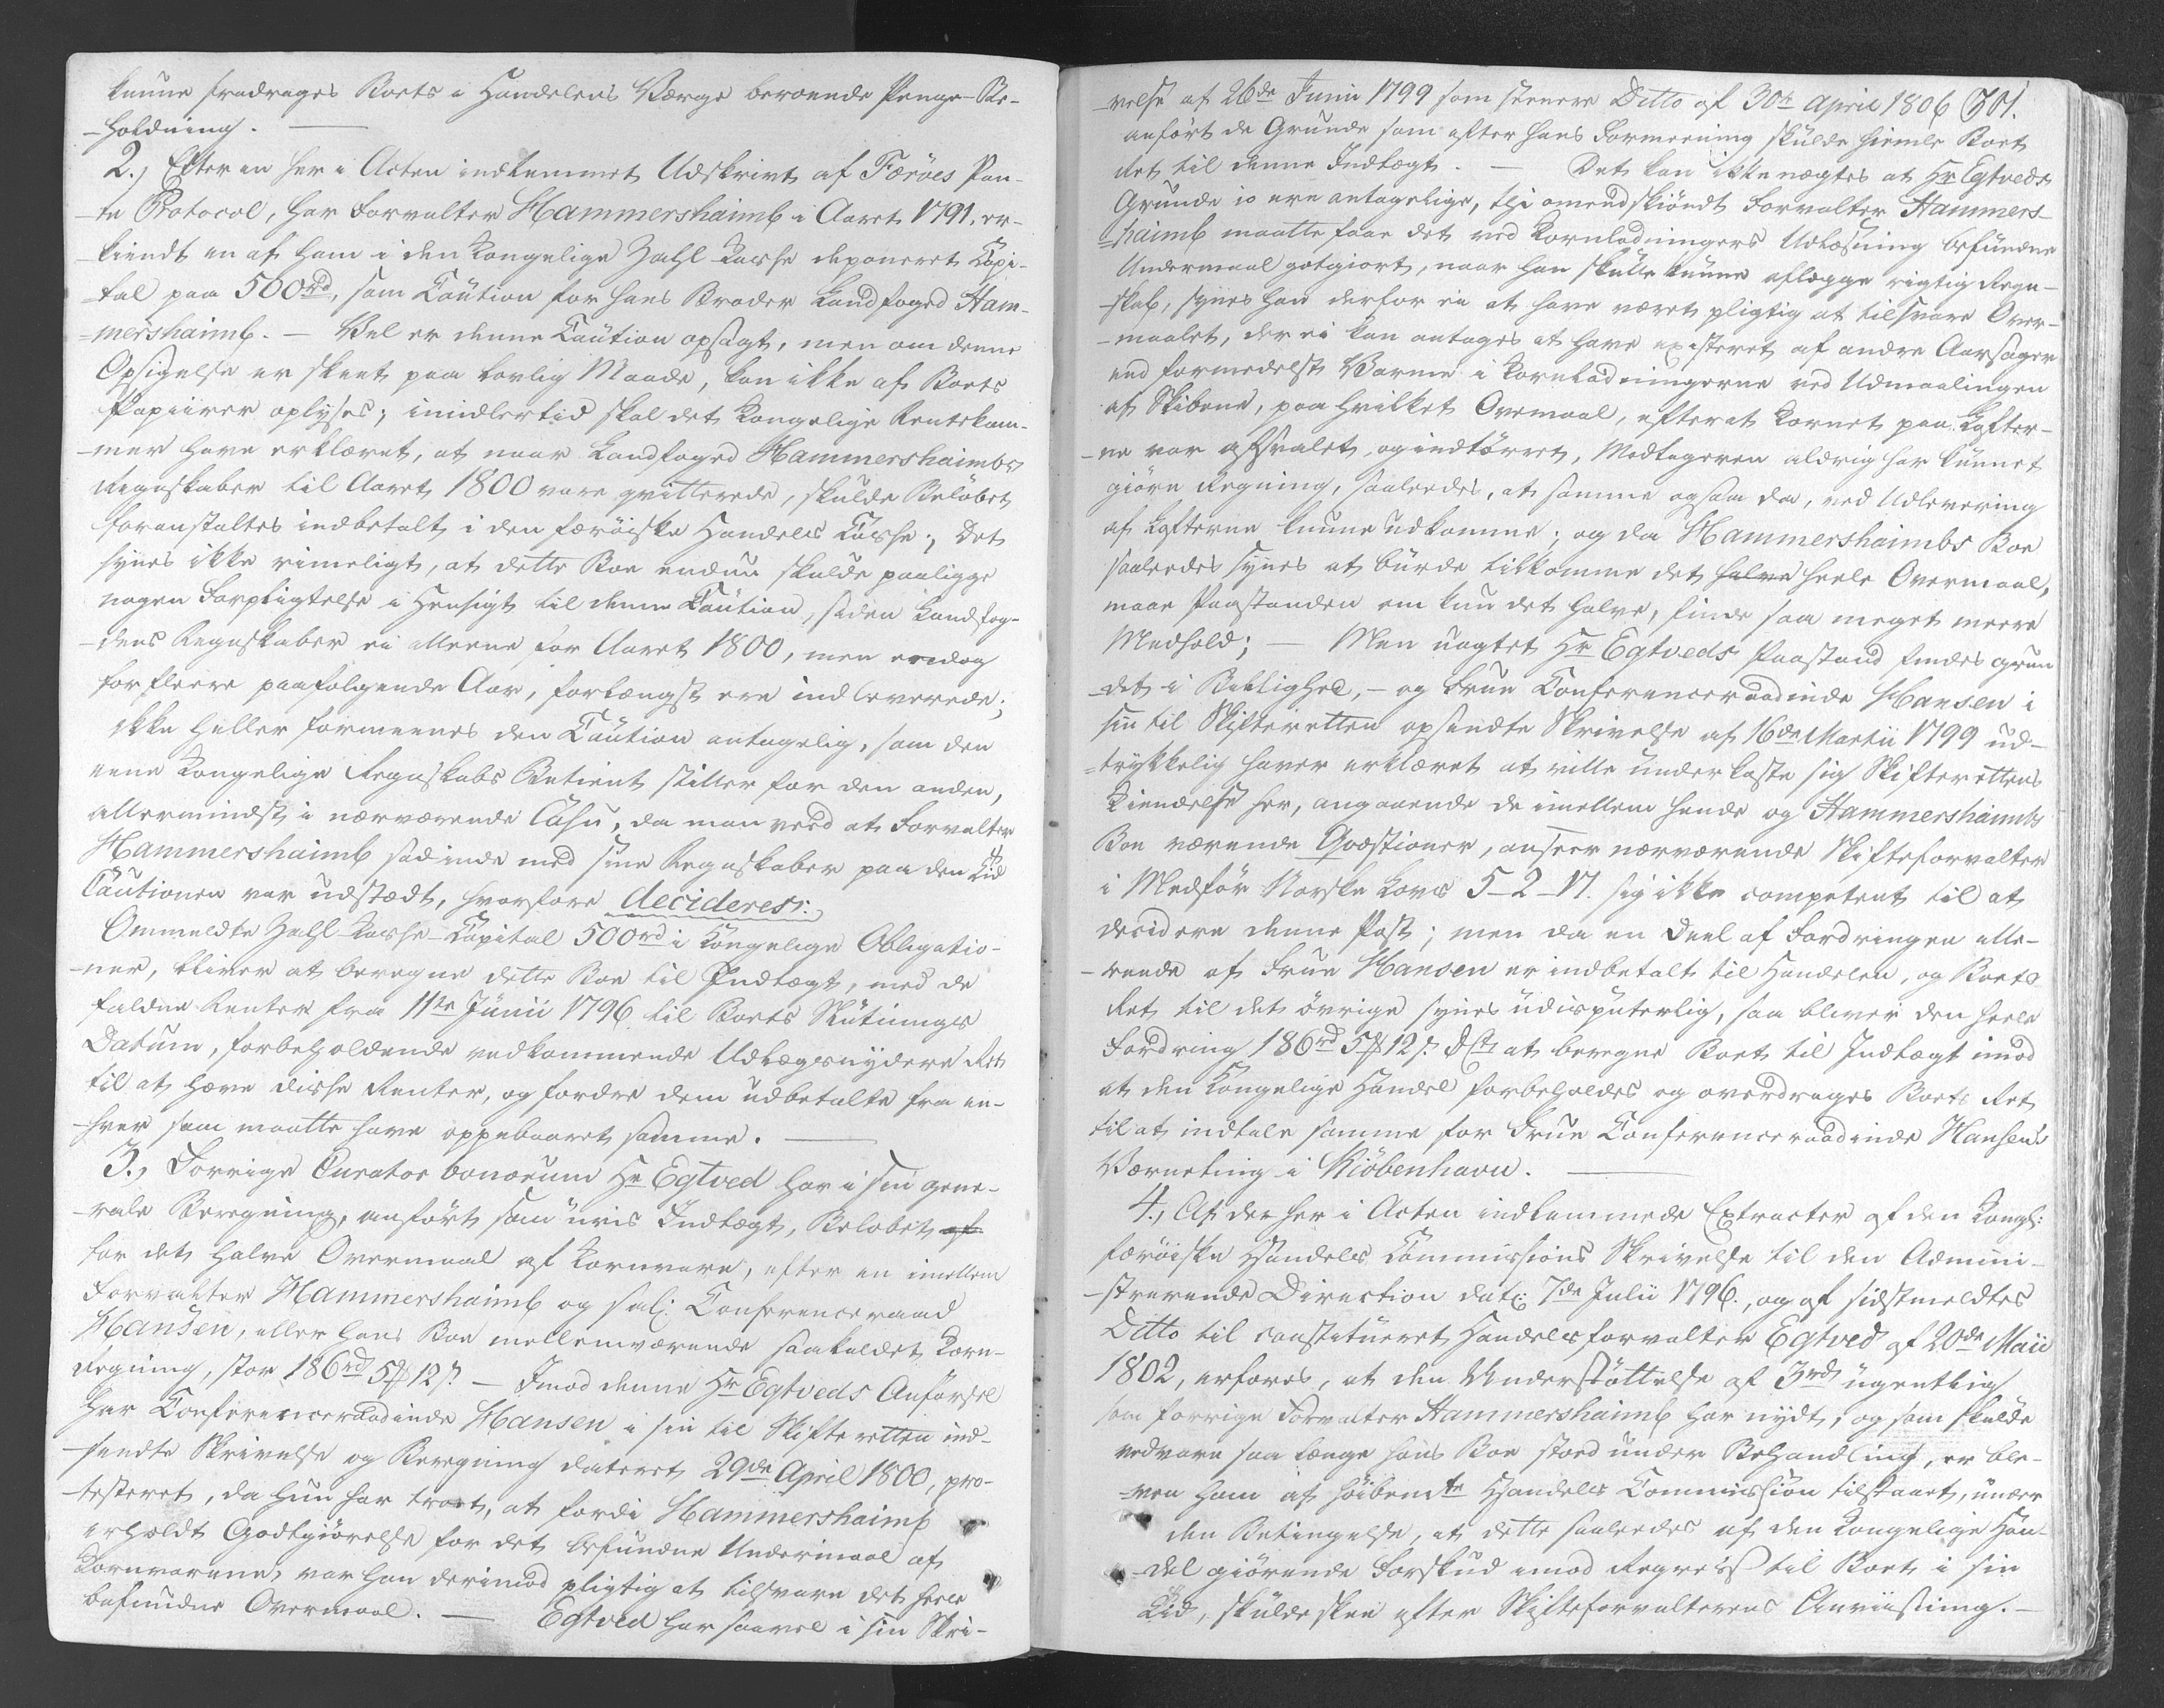 kunne fradrages Boets i Handelens Værge beroende Penge-Be-
-holdning. —
2., Efter en her i Acten indkommet Udskrivt af Færöes Pan-
-te Protocol, har Forvalter Hammershaimb i Aaret 1791. er-
-kiendt en af ham i den Kongelige Zahl-Kasse deponeret Kapi-
-tal paa 500rd, som Caution for hans Broder Landfoged Ham-
-mershaimb. — Vel er denne Caution opsagt, men om denne
Opsigelse er skeet paa lovlig Maade, kan ikke af Boets
Papiirer oplyses; imidlertid skal det Kongelige Rentekam-
-mer have erklæret, at naar Landfoged Hammershaimbs
Regnskaber til Aaret 1800 vare qvitterede, skulde Belöbet
foranstaltes indbetalt i den færöiske Handels Casse; Det
synes ikke rimeligt, at dette Boe endnu skulde paaligge
nogen Forpligtelse i Hensigt til denne Caution, siden Landfog-
-dens Regnskaber ei alleene for Aaret 1800, men endog
for fleere paafølgende Aar, forlængst ere indleverede;
ikke heller formeenes den Caution antagelig, som den
eene Kongelige Regnskabs Betient stiller for den anden,
allermindst i nærværende Casu, da man veed at Forvalter
Hammershaimb sad inde med sine Regnskaber paa den Tid
Cautionen var udstædt, hvorfore decideres:
Ommeldte Zahl-Kasse-Capital 500rd i Kongelige Obligatio-
-ner, bliver at beregne dette Boe til Indtægt, med de
faldne Renter fra 11te Junii 1796 til Boets Slutnings
Datum, forbeholdende vedkommende Udlægsnydere Ret
til at hæve disse Renter, og fordre dem udbetalte fra en-
-hver som maatte have oppebaaret samme. —
3., Forrige Curator bonorum Hr Egtved har i sin gene-
-rale Beregning, anfört som uvis Indtægt, Belöbet af
for det halve Overmaal af Kornvare, efter en imellem
Forvalter Hammershaimb og sal: Conferenceraad
Hansen, eller hans Boe mellemværende saakaldet Korn-
Regning, stor 186rd 5 12 s. — Imod denne Hr Egtveds Anförsel
har Conferenceraadinde Hansen i sin til Skifteretten ind-
-sendte Skrivelse og Beregning dateret 29de April 1800, pro-
-testeret, da hun har troet, at fordi Hammershaimb
erholdt Godtgiörelse for det befundne Undermaal af
Kornvarene, var han derimod pligtig at tilsvare det heele
befundne Overmaal. — Egtved har saavel i sin Skri-
-velse af 26de Junii 1799 som senere Ditto af 30te April 1806 301.
anfört de Grunde som efter hans Formeening skulde hiemle Boet
Ret til denne Indtægt. — Det kan ikke nægtes at Hr Egtveds
Grunde jo ere antagelige, thi omendskiöndt Forvalter Hammers-
-haimb maatte faae det ved Kornladningers Udlosning befundne
Undermaal gotgiort, naar han skulle kunne aflægge rigtig Regn-
-skab, synes han derfor ei at have været pligtig at tilsvare Over-
-maalet, der ei kan antages at have existeret af andre Aarsager
end formedelst Varme i Kornladningerne ved Udmaalingen
af Skibene, paa hvilket Overmaal, efterat Kornet paa Lofter-
-ne var afsvalet, og indtörret, Modtageren aldrig har kunnet
giöre Regning, saaledes, at samme ogsaa da, ved Udlevering
af Lofterne kunne udkomme; og da Hammershaimbs Boe
saaledes synes at burde tilkomme det halve heele Overmaal,
maae Paastanden om kun det halve, finde saa meget meere
Medhold; — Men uagtet Hr Egtveds Paastand findes grun-
-det i Billighed, — og Frue Conferenceraadinde Hansen i
sin til Skifteretten opsendte Skrivelse af 16de Martii 1799 ud-
-trykkelig haver erklæret at ville underkaste sig Skifterettens
Kiendelse her, angaaende de imellem hende og Hammershaimbs
Boe værende Qvæstioner, anseer nærværende Skifteforvalter
i Medför Norske Lovs 5-2-17. sig ikke competent til at
decidere denne Post; men da en Deel af Fordringen alle-
-reede af Frue Hansen er indbetalt til Handelen, og Boets
Ret til det övrige synes udisputerlig, saa bliver den heele
Fordring 186rd 5 12 s. at beregne Boet til Indtægt imod
at den Kongelige Handel forbeholdes og overdrages Boets Ret
til at indtale samme for Frue Conferenceraadinde Hansens
Værneting i Kiöbenhavn. —
4., Af de her i Acten indkommede Extracter af den Kongl:
færöiske Handels Commissions Skrivelse til den Admini-
-strerende Direction dat: 7de Julii 1796., og af sidstmeldtes
Ditto til constitueret Handelsforvalter Egtved af 20de Maii
1802, erfares, at den Understöttelse af 3rd ugentlig
som forrige Forvalter Hammershaimb har nydt, og som skulde
vedvare saa længe hans Boe stoed under Behandling, er ble-
-ven ham af höibemte Handels Commission tilstaaet, under
den Betingelse, at dette saaledes af den Kongelige Han-
-del giörende Forskud imod Regress til Boet i sin
Tid, skulde skee efter Skifteforvalterens Anviisning. —